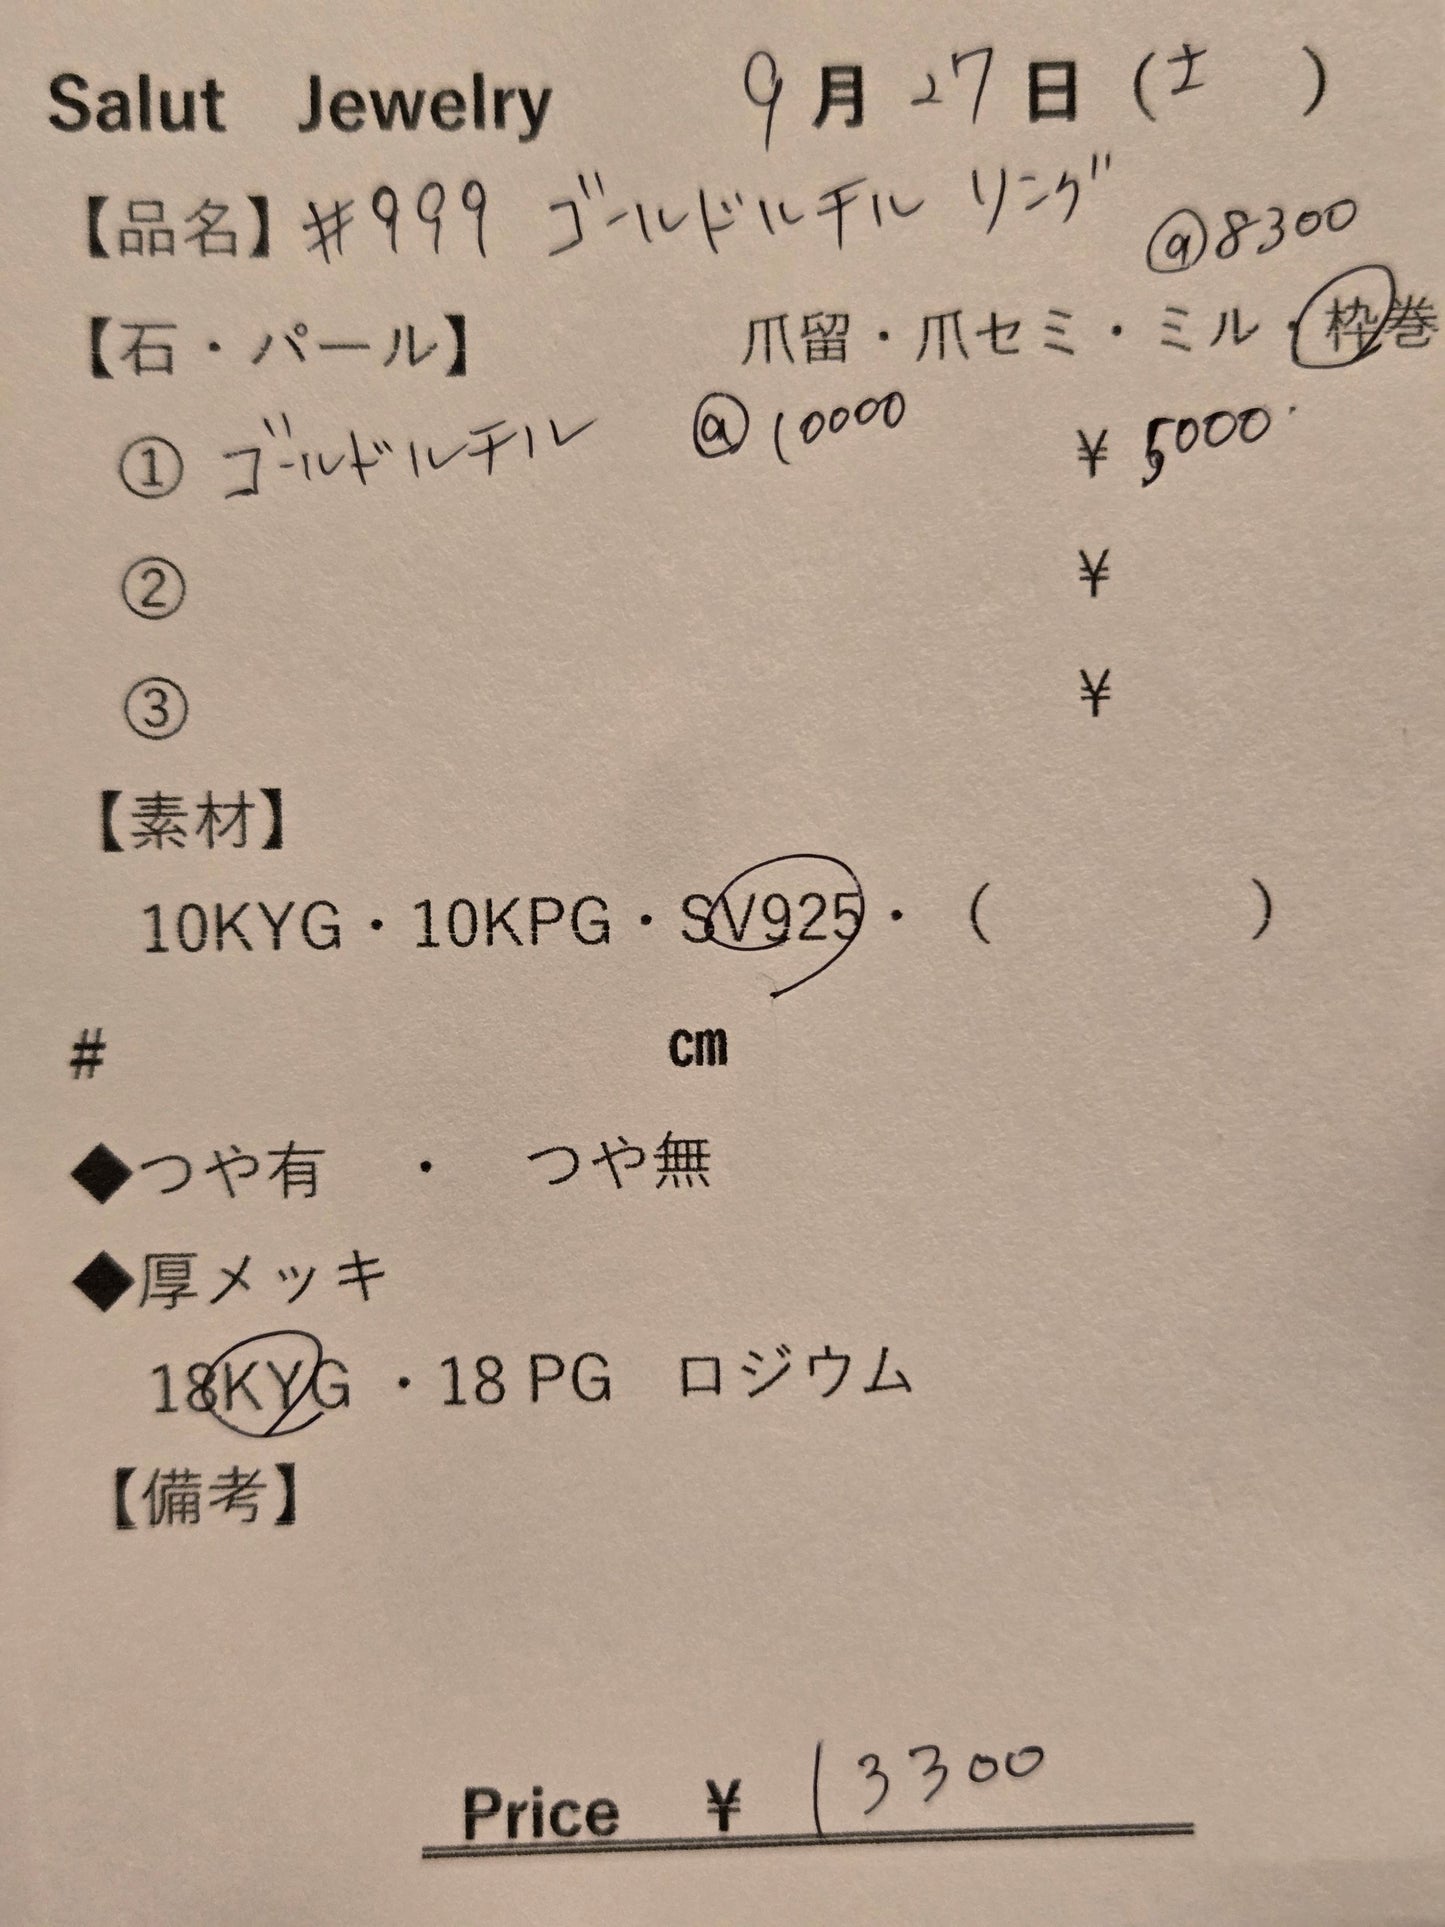 Salut Jewelry 9月27日(土 )
【品名】#999 ゴールドルチル リング @8300
【石・パール】 爪留・爪セミ・ミル・枠巻
① ゴールドルチル @10000 ¥5000
② ¥
③ ¥
【素材】
10KYG・10KPG・SV925・( )
# cm
◆つや有 ・ つや無
◆厚メッキ
18KYG ・18 PG ロジウム
【備考】
Price ¥ 13300